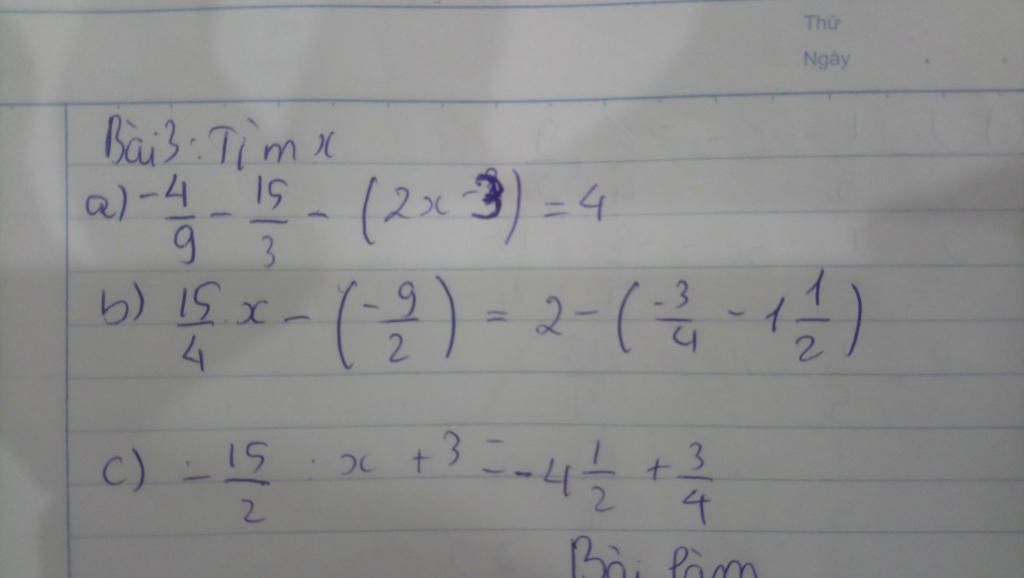 Thứ
Ngày
Bài 3: Tìm x
a) -4/9 - 15/3 - (2x - 3) = 4
b) 15/4 x - (-9/2) = 2 - (-3/4 - 1 1/2)
c) -15/2 . x + 3 = -4 1/2 + 3/4
Bài làm